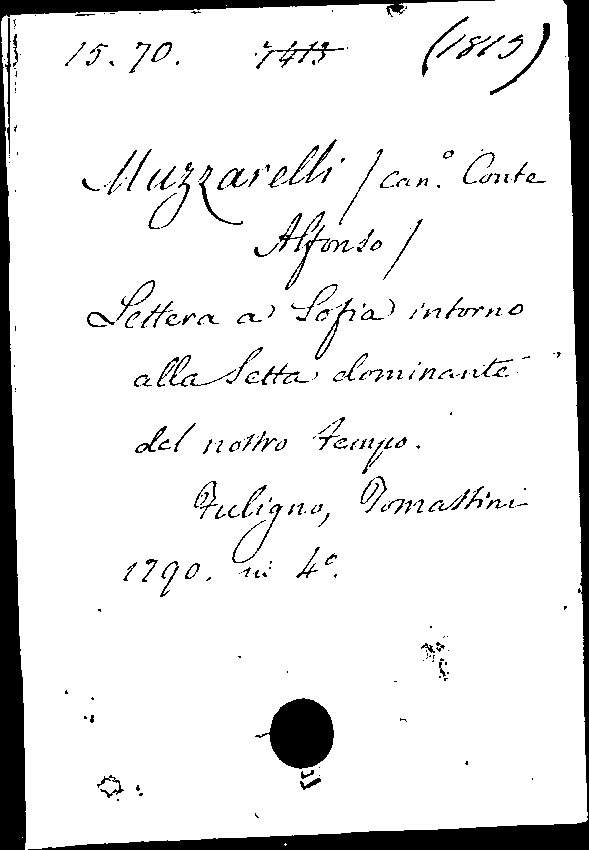 15. 70. 7413 (1813)
Muzzarelli / can.º Conte
Alfonso /
Lettera a Sofia intorno
alla Setta dominante
del nostro tempo.
Fuligno, Tomassini
1790. in 4º.